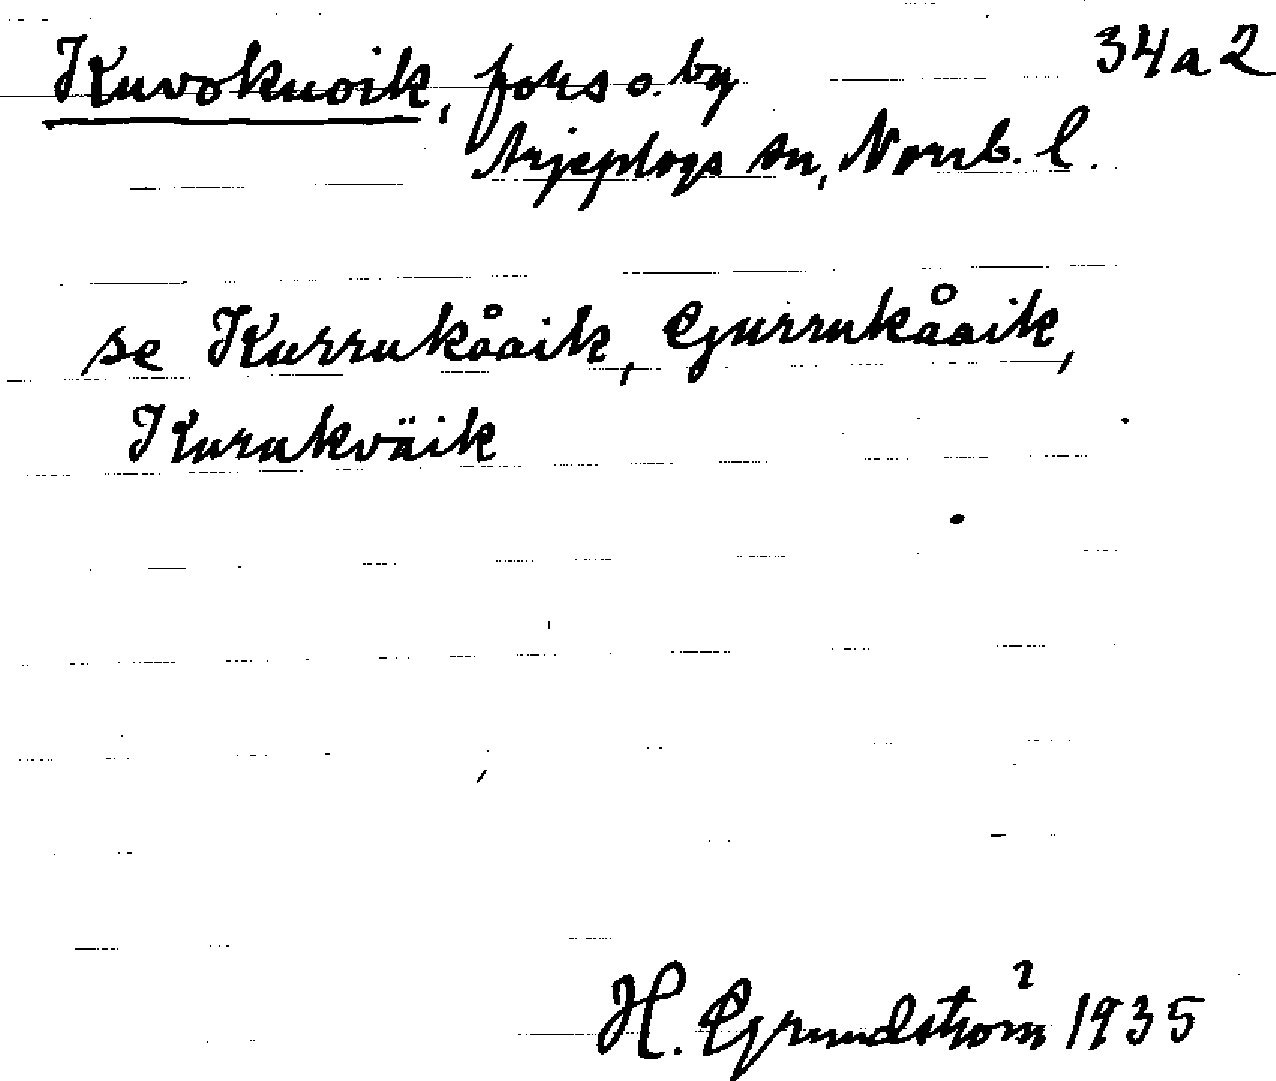 Kuvokuoik, fors o. by 34a2
Arjeplogs sn, Norrb. l.
se Kurrukåaik, Gurrukåaik,
Kurukväik
H. Grundström 1935